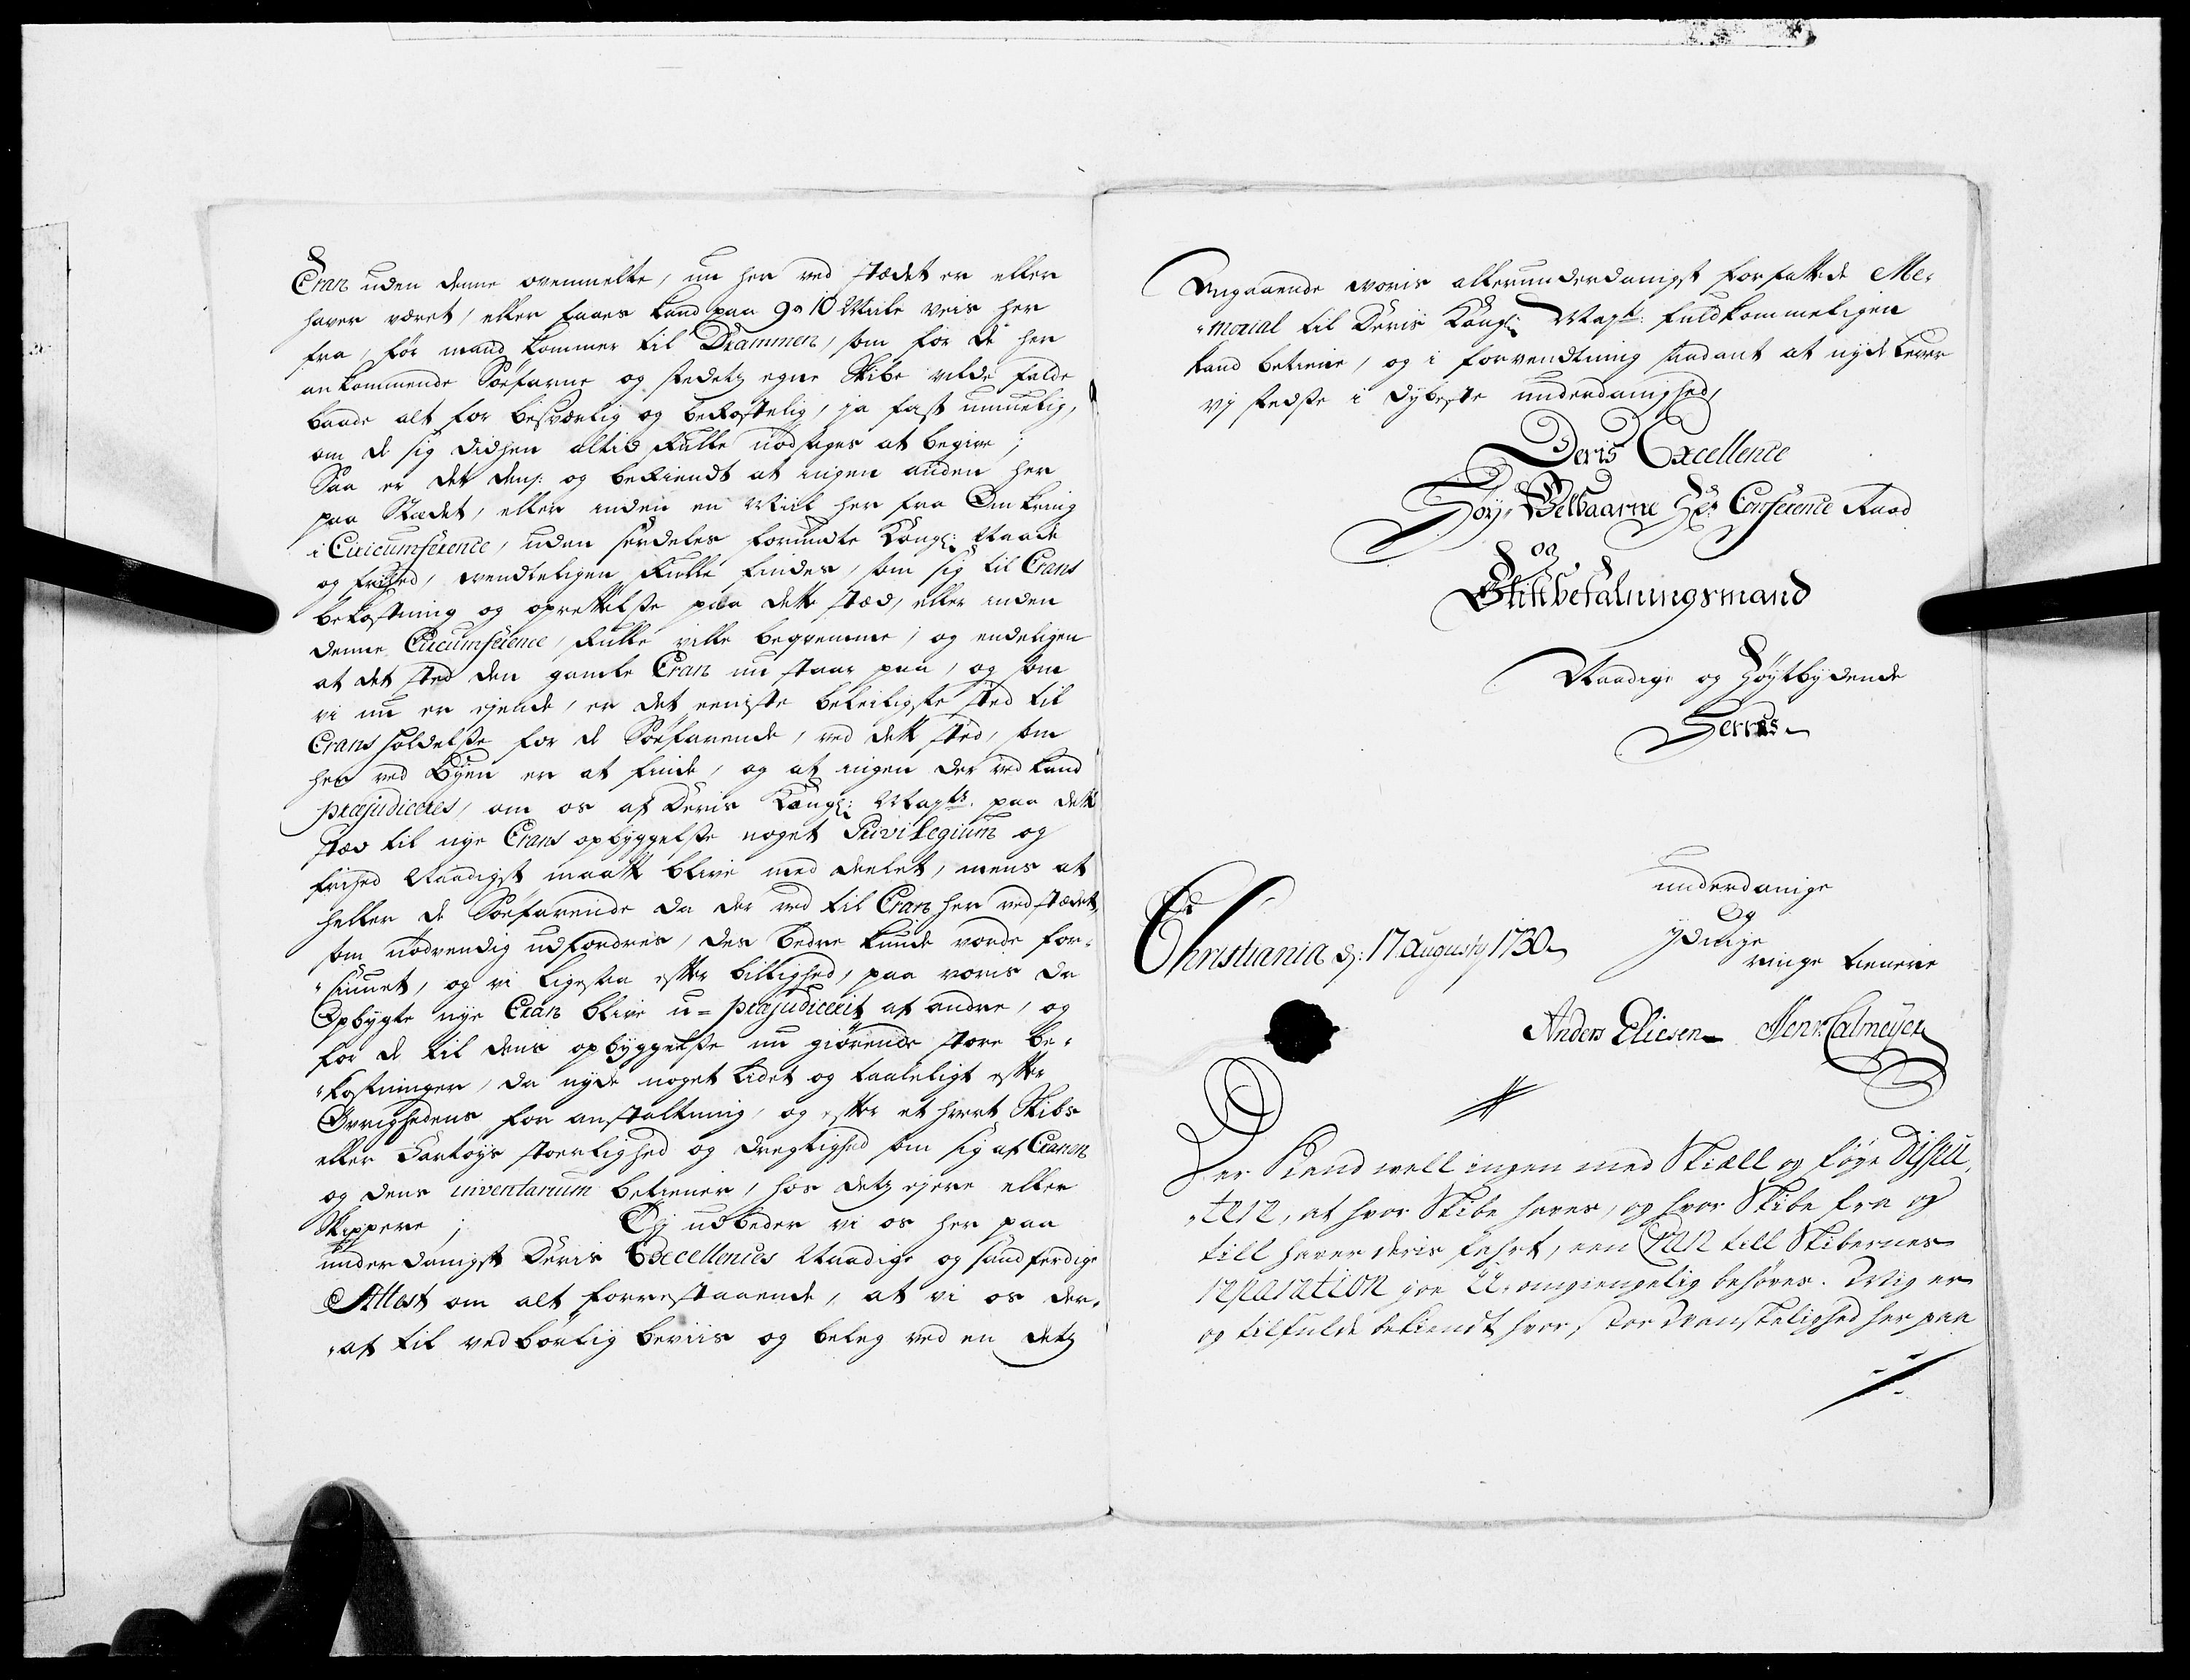 Cran uden denne ovenmelte, nu her ved stædet er eller
haver været, eller faaes kand paa 9 a 10 Miile veis her
fra, før mand kommer til Drammen, som for de her
ankommende Søefarne og stedetz egne Skibe vilde falde
baade alt for besværlig og bekostelig, ja fast umuelig,
om de sig didhen altid skulle nødsages at begive;
Saa er det dens: og bekiendt at ingen anden her
paa Stædet, eller inden en Miil her fra Omkring
i Circumference, uden særdeles forundte Kongl: Naade
og friihed, ventteligen skulle findes, som sig til Crans
bekostning og oprettelse paa dette stæd, eller inden
denne Circumference, skulle ville beqvemme; og endeligen
at det sted den gamle Cran nu staar paa, og som
vi nu er ejende, er det eeniste beleiligste sted til
Crans holdelse for de Søefarende, ved dette sted, som
her ved Byen er at finde, og at ingen der ved kand
præjudiceres, om os af Deris Kongl: Mayts. paa dette
stæd til nye Crans opbyggelse noget Privilegium og
friihed Naadigst maatte blive med deelet, mens at
heller de Søefarende da der ved til Cran her ved stædet,
som nødvendig udfordres, des bedre kunde vorde for-
"siunet, og vi ligesaa efter billighed, paa voris da
Opbygte nye Cran blive u=præjudicerit af andre, og
for de til dens opbyggelse nu giørende store be-
"kostninger, da nyde noget lidet og taaleligt efter
Øvrighedens for anstaltning, og efter et hvert Skibs
eller Fartøys størlighed og dregtighed som sig af Cranen
og dens inventarium betiener, hos detz ejere eller
Skippere; Thj udbeder vi os her paa
underdanigst Deris Excellences Naadige og sandferdige
Attest om alt forrestaaende, at vi os der-
"af til vedbørlig beviis og beleg ved en detz
Angaaende voris allerunderdanigst forfattede Me-
"morial til Deris Kongl: Mayt: fuldkommeligen
kand betiene, og i forventning saadant at nyde lever
vj stedse i dybeste underdanighed,
Deris Excellence
Høy-Velbaarne Hr. Conference Raad
og
Stiftbefalningsmand
Naadige og Høytbydende
Herres
underdanige
Og
ydmyge
ringe tienere
Christiania d: 17 Augusty 1730
Anders Eliesen Henr. Calmeyer
Der kand well ingen med Skiæll og føye disspu-
"tere, at hvor Skibe haves, og hvor Skibe fra og
till haver deris fahrt, een Cran till Skibernes
reparation joe U-omgiengelig behøves. Mig er
og tilfulde bekiendt hvor stor Vanskelighed her paa